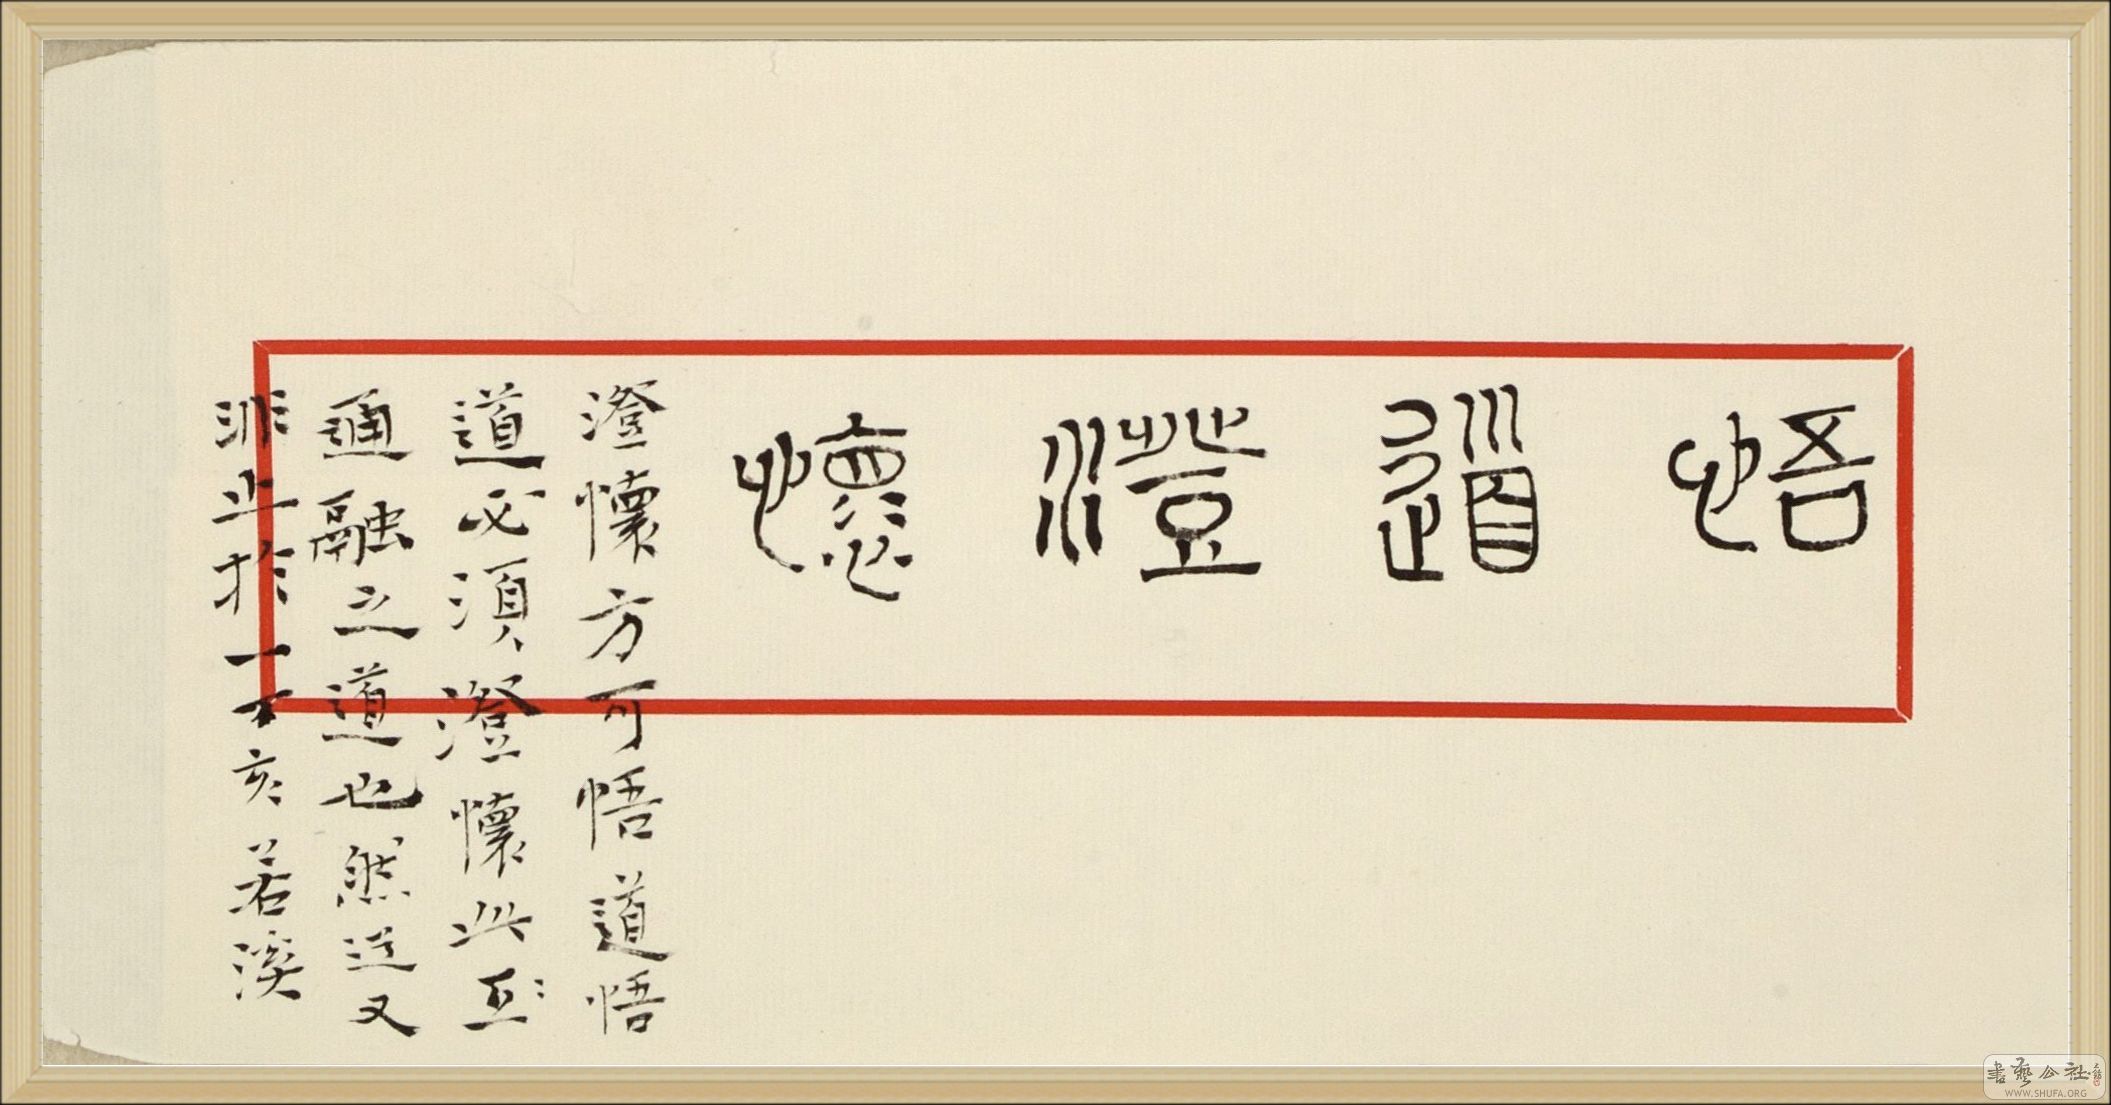 悟道澄懷
澄懷方可悟道悟
道必須澄懷此互
通融之道也然又
非止於一丁亥若溪
書藝公社
WWW.SHUFA.ORG